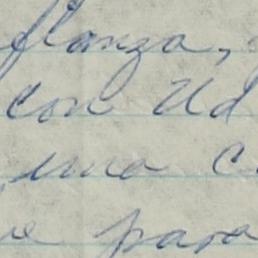 fianza,
con Ud
una c
e para